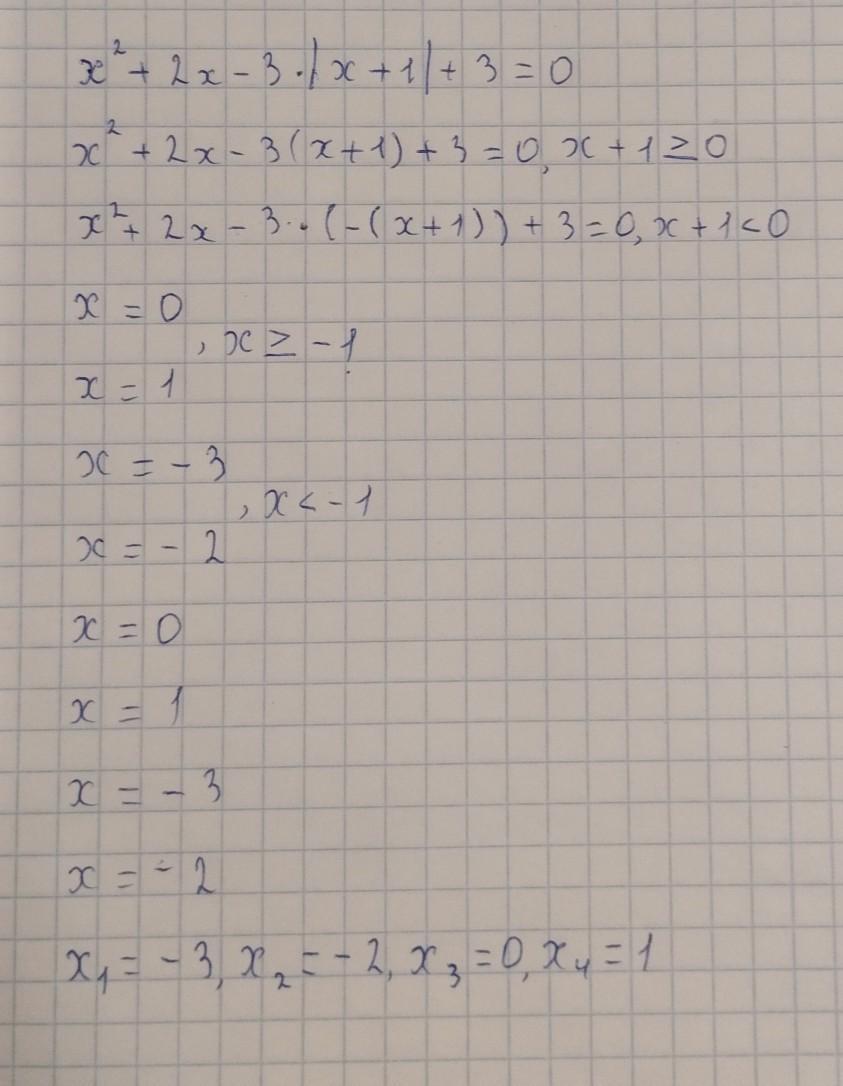 x² + 2x - 3 · |x + 1| + 3 = 0
x² + 2x - 3(x+1) + 3 = 0, x + 1 ≥ 0
x² + 2x - 3 · (-(x+1)) + 3 = 0, x + 1 < 0
x = 0
, x ≥ -1
x = 1
x = -3
, x < -1
x = -2
x = 0
x = 1
x = -3
x = -2
x₁ = -3, x₂ = -2, x₃ = 0, x₄ = 1